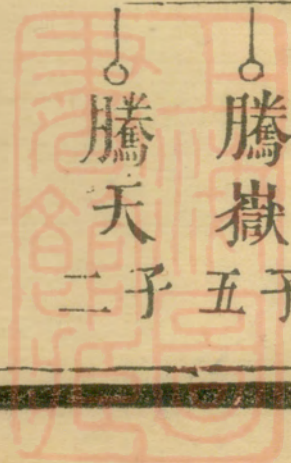 騰嶽子五
騰天子二